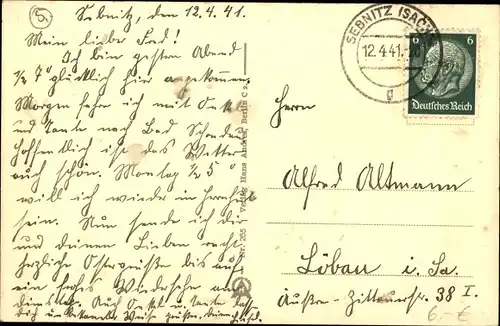 5.
Sebnitz, den 12.4.41.
Mein lieber Fred!
Ich bin gestern Abend
½ 7° glücklich hier angekommen.
Morgen fahre ich mit Onkel
und Tante nach Bad Schandau
hoffentlich ist das Wetter
auch schön. Montag ½ 5°
will ich wieder in
sein. Nun sende ich dir
und deinen Lieben recht
herzliche Ostergrüße bis auf
ein frohes Wiedersehn am
Dienstag. Auch Onkel u. Tante
dich Weise grüßen.
Verlag Hans Andres, Berlin C 2
Nr. 255
SEBNITZ (SACHS)
12.4.41.
g
6
6
Deutsches Reich
Herrn
Alfred Altmann
Löbau i. Sa.
Äußre-Zittauerstr. 38 I.
6.- €